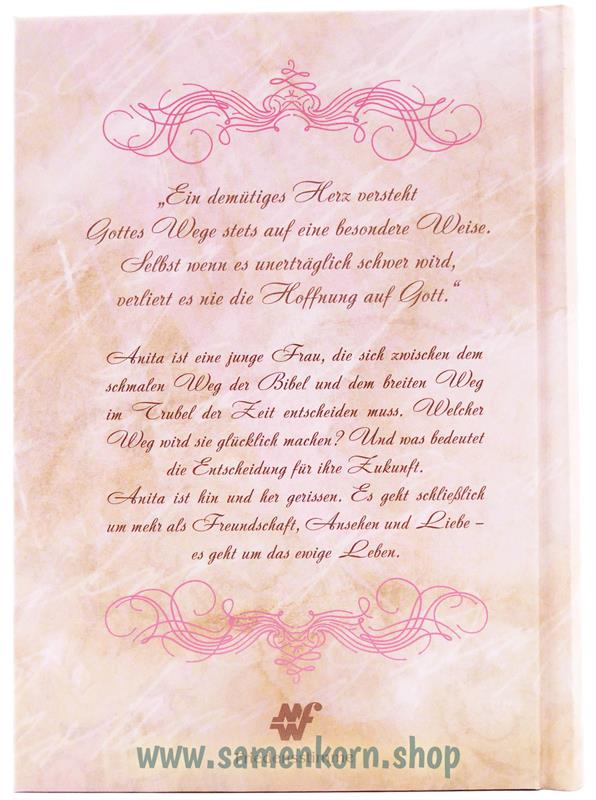 „Ein demütiges Herz versteht
Gottes Wege stets auf eine besondere Weise.
Selbst wenn es unerträglich schwer wird,
verliert es nie die Hoffnung auf Gott.“
Anita ist eine junge Frau, die sich zwischen dem
schmalen Weg der Bibel und dem breiten Weg
im Trubel der Zeit entscheiden muss. Welcher
Weg wird sie glücklich machen? Und was bedeutet
die Entscheidung für ihre Zukunft.
Anita ist hin und her gerissen. Es geht schließlich
um mehr als Freundschaft, Ansehen und Liebe –
es geht um das ewige Leben.
www.samenkorn.shop